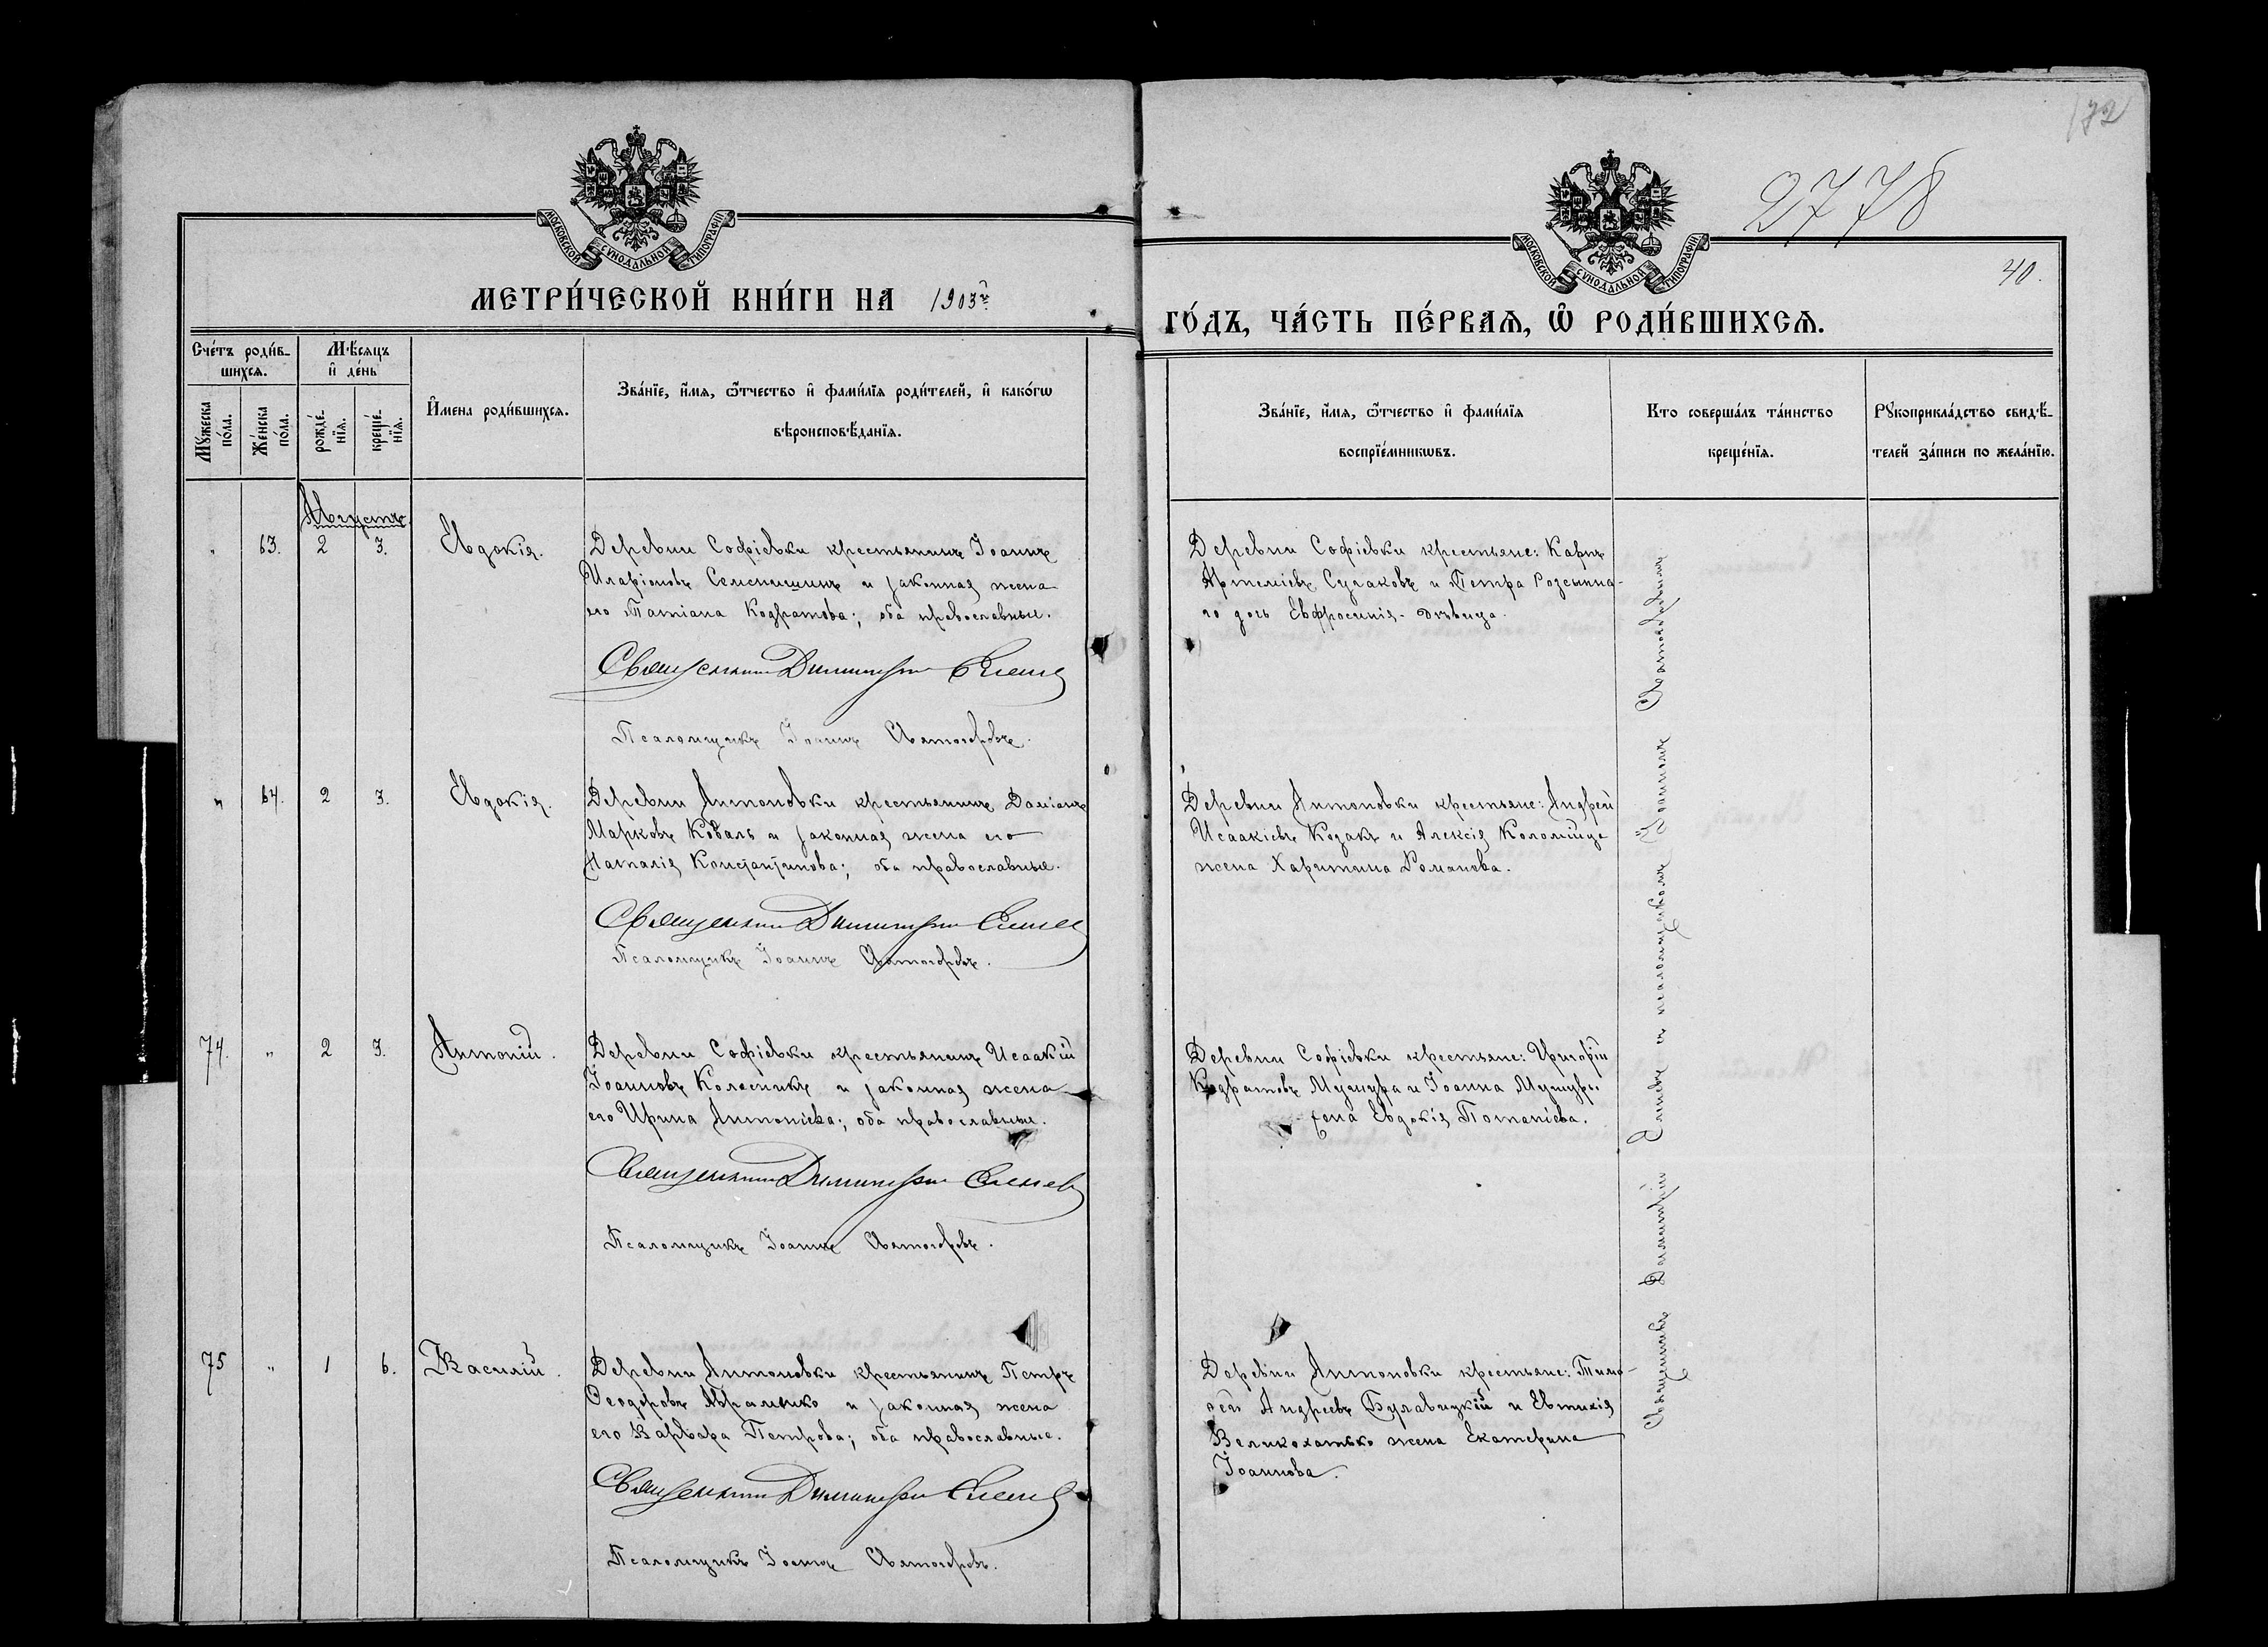 172
2778
40.
МОСКОВСКОЙ СѴНОДАЛЬНОЙ ТИПОГРАФІИ
МОСКОВСКОЙ СѴНОДАЛЬНОЙ ТИПОГРАФІИ
МЕТРИ́ЧЕСКОЙ КНИ́ГИ НА 1903й
ГО́ДЪ, ЧА́СТЬ ПЕ́РВАѦ, Ѡ РОДИ́ВШИХСѦ.
Сче́тъ роди́в-
шихсѧ.
Мѣ́сѧцъ
и҆ де́нь
Мꙋ́жеска
по́ла.
Же́нска
по́ла.
рожде́-
нїѧ.
креще́-
нїѧ.
И҆мена роди́вшихсѧ.
Зва́нїе, и҆́мѧ, ѻ҆́тчество и҆ фами́лїѧ роди́телей, и҆ како́гѡ
вѣроисповѣ́данїѧ.
Зва́нїе, и҆́мѧ, ѻ҆́тчество и҆ фами́лїѧ
воспрїе́мникѡвъ.
Кто соверша́лъ та́инство
креще́нїѧ.
Рꙋкоприкла́дство свидѣ́-
телей за́писи по жела́нїю.
Августъ.
" 63. 2 3. Евдокія.
Деревни Софіевки крестьянинъ Іоаннъ
Иларіоновъ и законная жена
его Татіана Кодратова; оба православные.
Священникъ Димитрій Еленевъ
Псаломщикъ Іоаннъ Святогоровъ.
Деревни Софіевки крестьяне: Карпъ
Артеміевъ Сулаковъ и Петра
го дочь Евфросинія - дѣвица.
" 64. 2 3. Евдокія.
Деревни Антоновки крестьянинъ Даміанъ
Марковъ Коваль и законная жена его
Наталія Константинова; оба православные.
Священникъ Димитрій Еленевъ
Псаломщикъ Іоаннъ Святогоровъ.
Деревни Антоновки крестьяне: Андрей
Исаакіевъ Козакъ и Алексія Коломійца
жена Харитина Романова.
74. " 2 3. Антоній.
Деревни Софіевки крестьянинъ Исаакій
Іоанновъ Колесникъ и законная жена
его Ирина Антоніева; оба православные.
Священникъ Димитрій Еленевъ
Псаломщикъ Іоаннъ Святогоровъ.
Деревни Софіевки крестьяне: Григорій
Кодратовъ Мушура и Іоанна Мушуры
жена Евдокія Потапіева.
75 " 1 6. Василій.
Деревни Антоновки крестьянинъ Петръ
Ѳеодоровъ Авраменко и законная жена
его Варвара Петрова; оба православные.
Священникъ Димитрій Еленевъ
Псаломщикъ Іоаннъ Святогоровъ.
Деревни Антоновки крестьяне: Тимо-
ѳей Андреевъ Булавицкій и Евтихія
Великохатько жена Екатерина
Іоаннова.
Священникъ Димитрій Еленевъ съ псаломщикомъ Іоанномъ Святогоровымъ